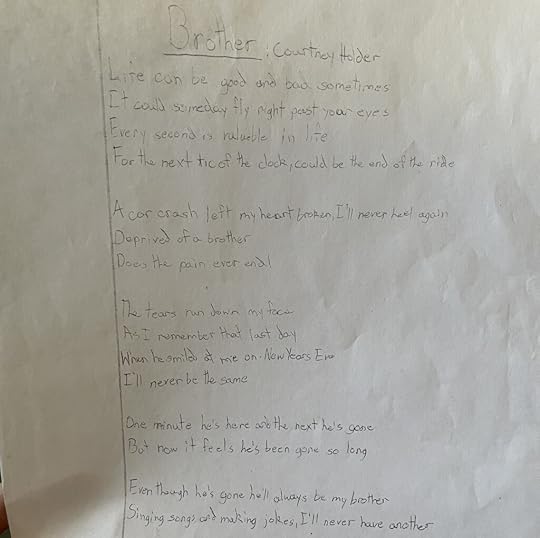 Brother : Courtney Holder
Life can be good and bad sometimes
It could someday fly right past your eyes
Every second is valueble in life
For the next tic of the clock, could be the end of the ride
A car crash left my heart broken, I'll never heel again
Deprived of a brother
Does the pain ever end!
The tears run down my face
As I remember that last day
When he smiled at me on New Years Eve
I'll never be the same
One minute he's here and the next he's gone
But now it feels he's been gone so long
Even though he's gone he'll always be my brother
Singing songs and making jokes, I'll never have another